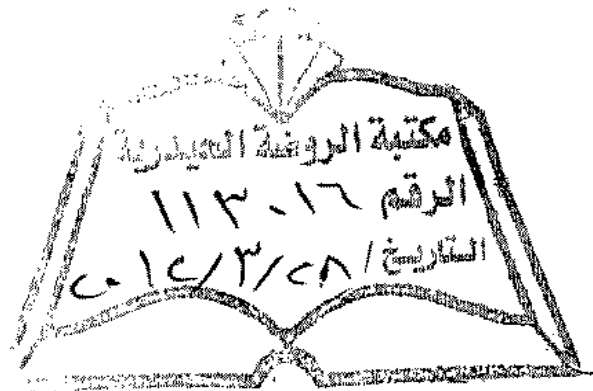 مكتبة الروضة الحيدرية
الرقم ١١٣٠١٦
التاريخ / ٢٨/٣/٢٠١٢